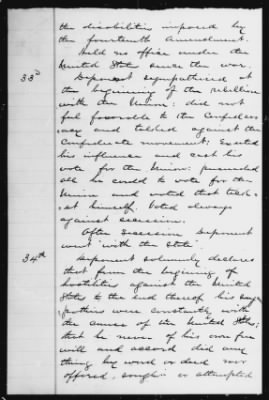 the disabilities imposed by
the fourteenth Amendment.
Held no office under the
United States since the war.
33d
Deponent sympathized at
the beginning of the rebellion
with the Union: did not
feel favorable to the Confeder-
acy and talked against the
Confederate movement; Exerted
his influence and cast his
vote for the Union: persuaded
all he could to vote for the
Union and voted that tick-
et himself. Voted always
against secession.
After Secession deponent
went "with the State".
34th
Deponent solemnly declares
that from the beginning of
hostilities against the United
States to the end thereof his sym-
pathies were constantly with
the cause of the United States;
that he never of his own free
will and accord did any
thing by word or deed nor
offered, sought or attempted